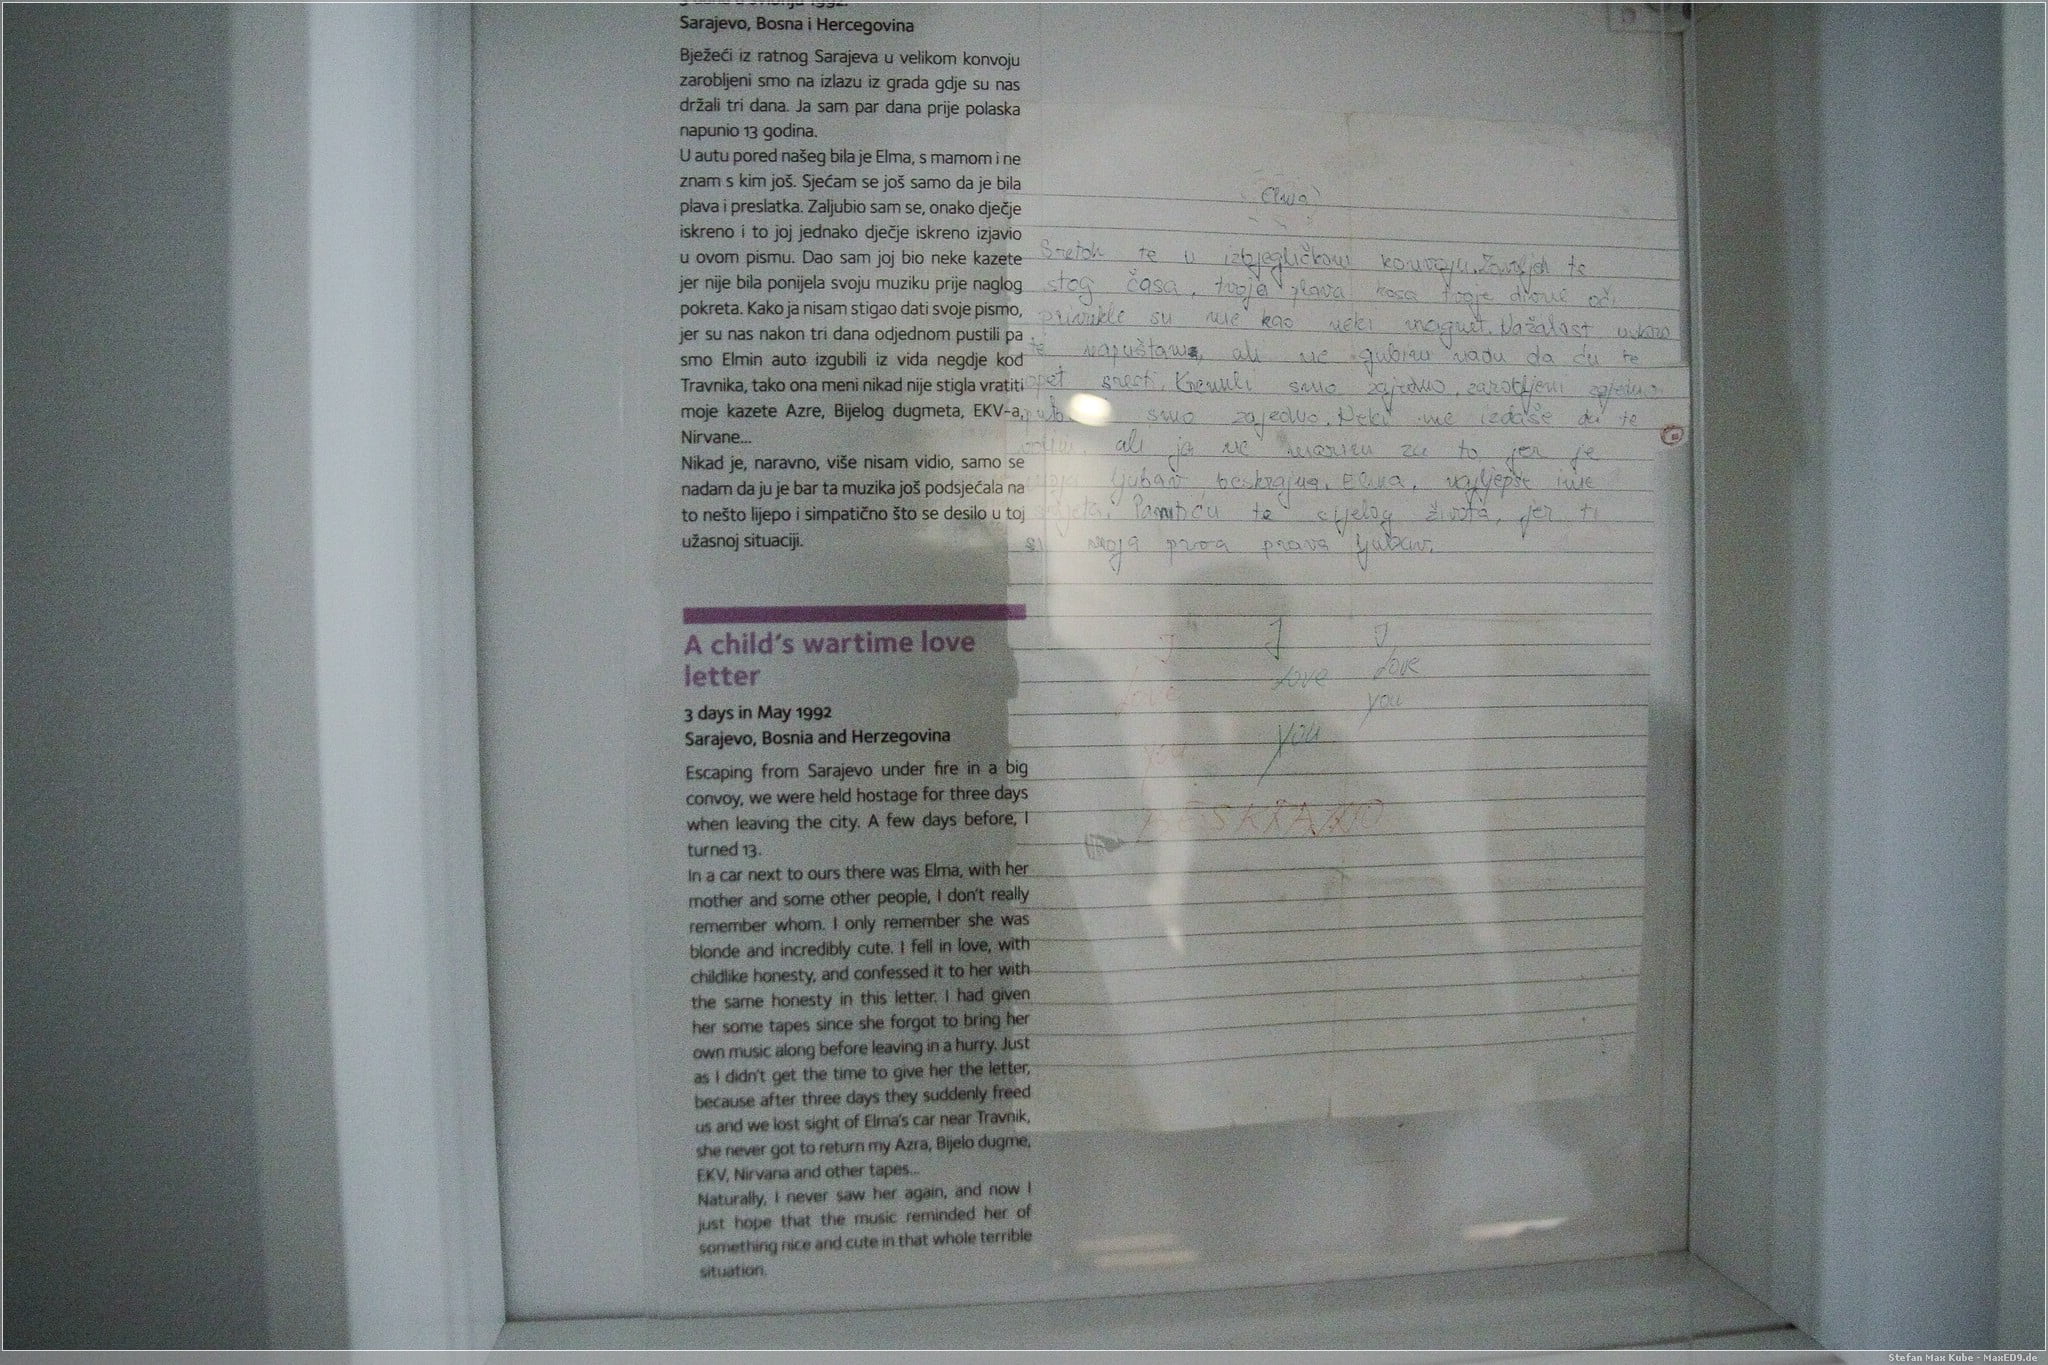 Sarajevo, Bosna i Hercegovina
Bježeći iz ratnog Sarajeva u velikom konvoju
zarobljeni smo na izlazu iz grada gdje su nas
držali tri dana. Ja sam par dana prije polaska
napunio 13 godina.
U autu pored našeg bila je Elma, s mamom i ne
znam s kim još. Sjećam se još samo da je bila
plava i preslatka. Zaljubio sam se, onako dječje
iskreno i to joj jednako dječje iskreno izjavio
u ovom pismu. Dao sam joj bio neke kazete
jer nije bila ponijela svoju muziku prije naglog
pokreta. Kako ja nisam stigao dati svoje pismo,
jer su nas nakon tri dana odjednom pustili pa
smo Elmin auto izgubili iz vida negdje kod
Travnika, tako ona meni nikad nije stigla vratiti
moje kazete Azre, Bijelog dugmeta, EKV-a,
Nirvane...
Nikad je, naravno, više nisam vidio, samo se
nadam da ju je bar ta muzika još podsjećala na
to nešto lijepo i simpatično što se desilo u toj
užasnoj situaciji.
A child's wartime love
letter
3 days in May 1992
Sarajevo, Bosnia and Herzegovina
Escaping from Sarajevo under fire in a big
convoy, we were held hostage for three days
when leaving the city. A few days before, I
turned 13.
In a car next to ours there was Elma, with her
mother and some other people, I don't really
remember whom. I only remember she was
blonde and incredibly cute. I fell in love, with
childlike honesty, and confessed it to her with
the same honesty in this letter. I had given
her some tapes since she forgot to bring her
own music along before leaving in a hurry. Just
as I didn't get the time to give her the letter,
because after three days they suddenly freed
us and we lost sight of Elma's car near Travnik,
she never got to return my Azra, Bijelo dugme,
EKV, Nirvana and other tapes...
Naturally, I never saw her again, and now I
just hope that the music reminded her of
something nice and cute in that whole terrible
situation.
Sretoh te u izbjegličkom konvoju. Zavoljeh te
istog časa, tvoja plava kosa tvoje divne oči
privukle su me kao neki magnet. Nažalost
te napuštam, ali ne gubim nadu da ću te
opet sresti. Krenuli smo zajedno, zarobljeni zajedno
smo zajedno. Neki me
ali ja ne marim za to jer je
moja ljubav beskrajna. Elma, najljepše ime
svijeta. Pamtiću te cijelog života, jer ti
si moja prva prava ljubav.
I I I
love love love
you you you
BESKRAJNO
Stefan Max Kube - MaxED9.de